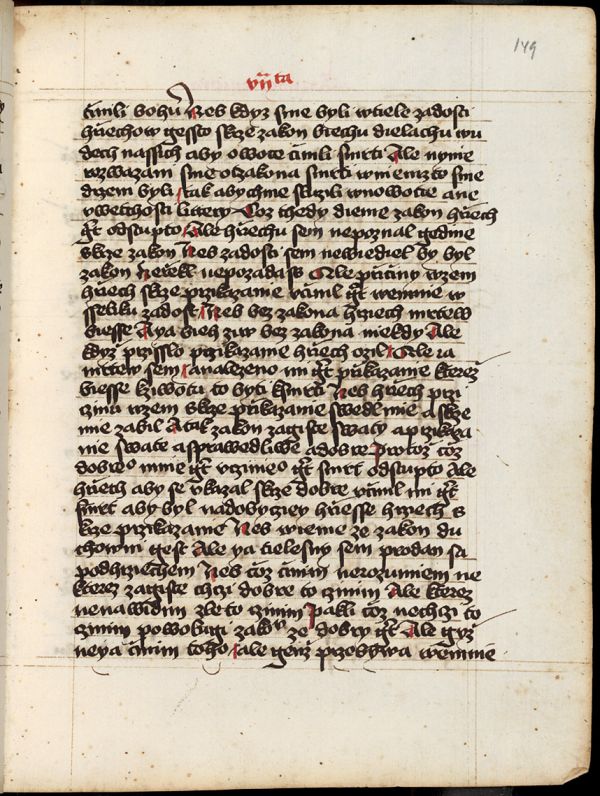 149
vii ta
czinili bohu Neb kdyz sme byli wtiele zadosti
hriechow gessto skrze zakon biechu dielachu wu
dech nassich aby owotce czinili smrti Ale nynie
rozwazani sme otzakona smrti wniemzto sme
drzeni byli tak abychme sluzili wnowotie a ne
vwetchosti littery Coz thedy dieme zakon hriech
gt odstupto Ale hriechu sem nepoznal gedine
skrze zakon Neb zadosti sem newiediel by byl
zakon nerzekl nepozadass Ale priciny wzem
hriech skrze przikazanie vcinil gt wemnie w
sseliku zadost Neb bez zakona hrziech mrtew
biesse A ya bieh ziw bez zakona niekdy Ale
kdyz przisslo przikazanie hriech ozil Ale ia
mrtew sem a nalezeno mi gt prikazanie kterez
biesse kziwotu to byti ksmrti Neb hriech przi
czinu wzem skrze prikazanie swedl mie a skrze
nie zabil A tak zakon zagiste swaty a przikaza
nie swate a sprawedliwe a dobre Protoz coz
dobreo mnie gt vczineo gt smrt odstupto Ale
hriech aby se vkazal skrze dobre vcinil mi gt
smrt aby byl nadobyczey hriesse hrziech s
krze przikazanie Neb wieme ze zakon du
chowni gest Ale ya tielesny sem prodan sa
pod hrziechem Neb coz cinim nerozumiem ne
kterez zagiste chci dobre to czinim Ale kterez
nenawidim zle to czinim Pakli coz nechci to
czinim powolugi zakou ze dobry gt Ale gyz
ne ya cinim toho ale genz przebywa wemnie